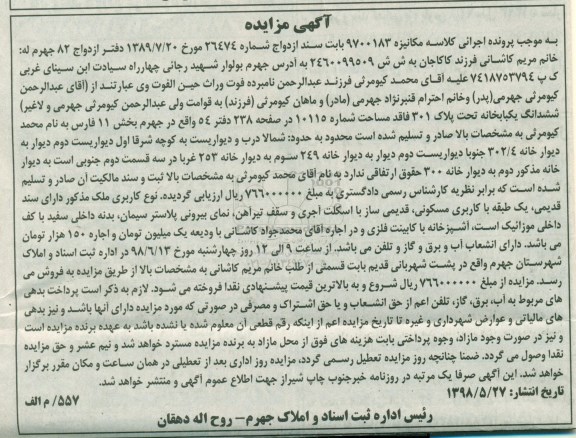 آگهی مزایده
به موجب پرونده اجرائی کلاسه مکانیزه ۹۷۰۰۱۸۳ بابت سند ازدواج شماره ۲۶۴۷۴ مورخ ۱۳۸۹/۷/۲۰ دفتر ازدواج ۸۲ جهرم له:
خانم مریم کاشانی فرزند کاکاجان به ش ش ۲۴۶۰۰۹۹۵۰۹ به آدرس جهرم بولوار شهید رجائی چهارراه سیادت ابن سینای غربی
ک پ ۷۴۱۸۷۵۳۷۹۴ علیه آقای محمد کیومرثی فرزند عبدالرحمن نامبرده فوت وراث حین الفوت وی عبارتند از (آقای عبدالرحمن
کیومرثی جهرمی(پدر) وخانم احترام قنبرنژاد جهرمی (مادر) و ماهان کیومرثی (فرزند) به قوامت ولی عبدالرحمن کیومرثی جهرمی و لاغیر)
ششدانگ یکبابخانه تحت پلاک ۳۰۱ فاقد مساحت شماره ۱۰۱۱۵ در صفحه ۲۳۸ دفتر ۵۴ واقع در جهرم بخش ۱۱ فارس به نام محمد
کیومرثی به مشخصات بالا صادر و تسلیم شده است محدود به حدود: شمالا درب و دیواریست به کوچه شرقا اول دیواریست دوم دیوار به
دیوار خانه ۳۰۲/۴ جنوبا دیواریست دوم دیوار به دیوار خانه ۲۴۹ سوم به دیوار خانه ۲۵۳ غربا در سه قسمت دوم جنوبی است به دیوار
خانه مذکور دوم به دیوار خانه ۳۰۰ حقوق ارتفاقی ندارد به نام آقای محمد کیومرثی به مشخصات بالا ثبت و سند مالکیت آن صادر و تسلیم
شده است که برابر نظریه کارشناس رسمی دادگستری به مبلغ ۷۶۶۰۰۰۰۰۰۰ ریال ارزیابی گردیده. نوع کاربری ملک مذکور دارای سند
قدیمی، یک طبقه با کاربری مسکونی، قدیمی ساز با اسکلت آجری و سقف تیرآهن، نمای بیرونی پلاستر سیمان، بدنه داخلی سفید با کف
داخلی موزائیک است، آشپزخانه با کابینت فلزی و در اجاره آقای محمدجواد کاشانی با ودیعه یک میلیون تومان و اجاره ۱۵۰ هزار تومان
می باشد. دارای انشعاب آب و برق و گاز و تلفن می باشد. از ساعت ۹ الی ۱۲ روز چهارشنبه مورخ ۹۸/۶/۱۳ در اداره ثبت اسناد و املاک
شهرستان جهرم واقع در پشت شهربانی قدیم بابت قسمتی از طلب خانم مریم کاشانی به مشخصات بالا از طریق مزایده به فروش می
رسد. مزایده از مبلغ ۷۶۶۰۰۰۰۰۰۰ ریال شروع و به بالاترین قیمت پیشنهادی نقدا فروخته می شود. لازم به ذکر است پرداخت بدهی
های مربوط به آب، برق، گاز، تلفن اعم از حق انشعاب و یا حق اشتراک و مصرفی در صورتی که مورد مزایده دارای آنها باشد و نیز بدهی
های مالیاتی و عوارض شهرداری و غیره تا تاریخ مزایده اعم از اینکه رقم قطعی آن معلوم شده یا نشده باشد به عهده برنده مزایده است
و نیز در صورت وجود مازاد، وجوه پرداختی بابت هزینه های فوق از محل مازاد به برنده مزایده مسترد خواهد شد و نیم عشر و حق مزایده
نقدا وصول می گردد. ضمنا چنانچه روز مزایده تعطیل رسمی گردد، مزایده روز اداری بعد از تعطیلی در همان ساعت و مکان مقرر برگزار
خواهد شد. این آگهی صرفا یک مرتبه در روزنامه خبرجنوب چاپ شیراز جهت اطلاع عموم آگهی و منتشر خواهد شد.
تاریخ انتشار: ۱۳۹۸/۵/۲۷
۵۵۷/ م الف
رئیس اداره ثبت اسناد و املاک جهرم– روح اله دهقان